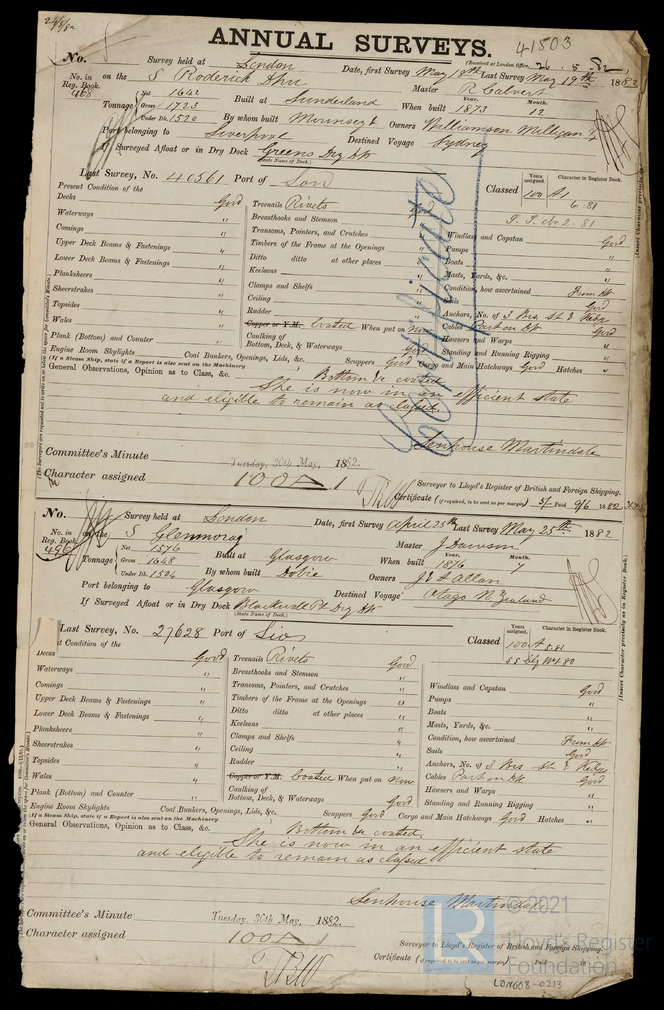 ANNUAL SURVEYS.
41503
(Received at London Office, 26. 5. 82
No. Survey held at London Date, first Survey May 18th Last Survey May 19th 1882
No. in Reg. Book. 468 on the S Roderick Dhu Master R Calvert
Tonnage Net 1642 Gross 1723 Under Dk. 1520 Built at Sunderland When built Year. 1873 Month. 12
By whom built Mounsey & Owners Williamson Milligan &
Port belonging to Liverpool Destined Voyage Sydney
If Surveyed Afloat or in Dry Dock Greens Dry Dk
(State Name of Dock.)
Last Survey, No. 40561 Port of Lon Classed Years assigned. 100 A1 Character in Register Book.
6.81
Present Condition of the
Decks Good Treenails Rivets Good
Waterways " Breasthooks and Stemson " Windlass and Capstan Good
Comings " Transoms, Pointers, and Crutches " Pumps "
Upper Deck Beams & Fastenings " Timbers of the Frame at the Openings " Boats "
Lower Deck Beams & Fastenings " Ditto ditto at other places " Masts, Yards, &c. "
Planksheers " Keelsons " Condition, how ascertained From Dk
Sheerstrakes " Clamps and Shelfs " Sails Good
Topsides " Ceiling " Anchors, No. of 3 Brs. St & Kedge
Wales " Rudder " Cables Part on Dk Good
Plank (Bottom) and Counter " Copper or Y.M. Coated When put on Now Hawsers and Warps "
Caulking of Bottom, Deck, & Waterways Good Standing and Running Rigging "
Engine Room Skylights Coal Bunkers, Openings, Lids, &c. Scuppers Good Cargo and Main Hatchways Good Hatches "
(If a Steam Ship, state if a Report is also sent on the Machinery
General Observations, Opinion as to Class, &c. Bottom &c coated
She is now in an efficient state
and eligible to remain as classed
Certificate
Senhouse Martindale
Committee's Minute Tuesday, 30th May, 1882.
Character assigned 100 A 1
Surveyor to Lloyd's Register of British and Foreign Shipping.
Certificate (if required, to be sent as per margin) 5/- Paid 9/6 1882
No. Survey held at London Date, first Survey April 25th Last Survey May 25th 1882
No. in Reg. Book. 496 on the S Glenmorag Master J Dawson
Tonnage Net 1576 Gross 1648 Under Dk. 1504 Built at Glasgow When built Year. 1876 Month. 7
By whom built Dobie Owners J & A Allan
Port belonging to Glasgow Destined Voyage Otago N. Zealand
If Surveyed Afloat or in Dry Dock Blackwall Pt Dry Dk
(State Name of Dock.)
Last Survey, No. 27628 Port of Liv Classed Years assigned. 100 A 5.81 Character in Register Book.
t Condition of the
Decks Good Treenails Rivets Good
Waterways " Breasthooks and Stemson " Windlass and Capstan Good
Comings " Transoms, Pointers, and Crutches " Pumps "
Upper Deck Beams & Fastenings " Timbers of the Frame at the Openings " Boats "
Lower Deck Beams & Fastenings " Ditto ditto at other places " Masts, Yards, &c. "
Planksheers " Keelsons " Condition, how ascertained From Dk
Sheerstrakes " Clamps and Shelfs " Sails Good
Topsides " Ceiling " Anchors, No. of 3 Brs. St & Kedge
Wales " Rudder " Cables Part on Dk Good
Plank (Bottom) and Counter " Copper or Y.M. Coated When put on Now Hawsers and Warps "
Caulking of Bottom, Deck, & Waterways Good Standing and Running Rigging "
Engine Room Skylights Coal Bunkers, Openings, Lids, &c. Scuppers Good Cargo and Main Hatchways Good Hatches "
(If a Steam Ship, state if a Report is also sent on the Machinery
General Observations, Opinion as to Class, &c. Bottom &c coated,
She is now in an efficient state
and eligible to remain as classed
Senhouse Martindale
Committee's Minute Tuesday, 30th May, 1882.
Character assigned 100 A 1
Surveyor to Lloyd's Register of British and Foreign Shipping.
Certificate (if required, to be sent as per margin) Paid
© 2021
Lloyd's Register
Foundation
LDN608-0213